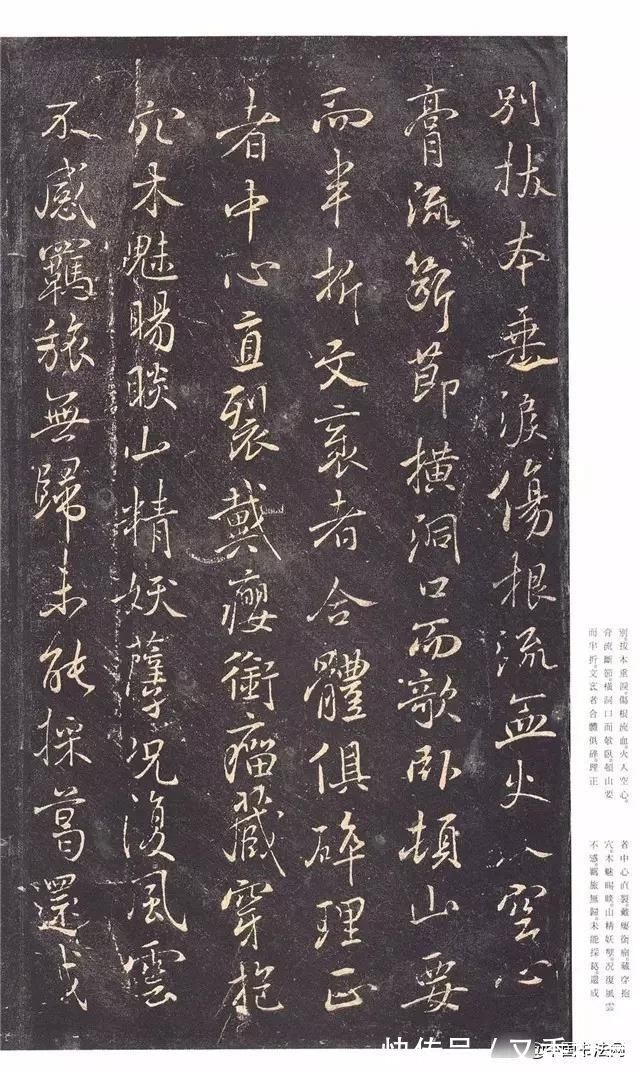 別拔本垂淚傷根流血火入空心
膏流斷節橫洞口而欹臥頓山要
而半折文袤者合體俱碎理正
者中心直裂戴癭銜瘤藏穿抱
穴木魅睗睒山精妖孽況復風雲
不感羈旅無歸未能採葛還成
別。拔本垂淚。傷根流血。火入空心。
膏流斷節。橫洞口而欹臥。頓山要
而半折。文袤者合體俱碎。理正
者中心直裂。戴癭銜瘤。藏穿抱
穴。木魅睗睒。山精妖孽。況復風雲
不感。羈旅無歸。未能採葛。還成
快传号 /
@中国书法网